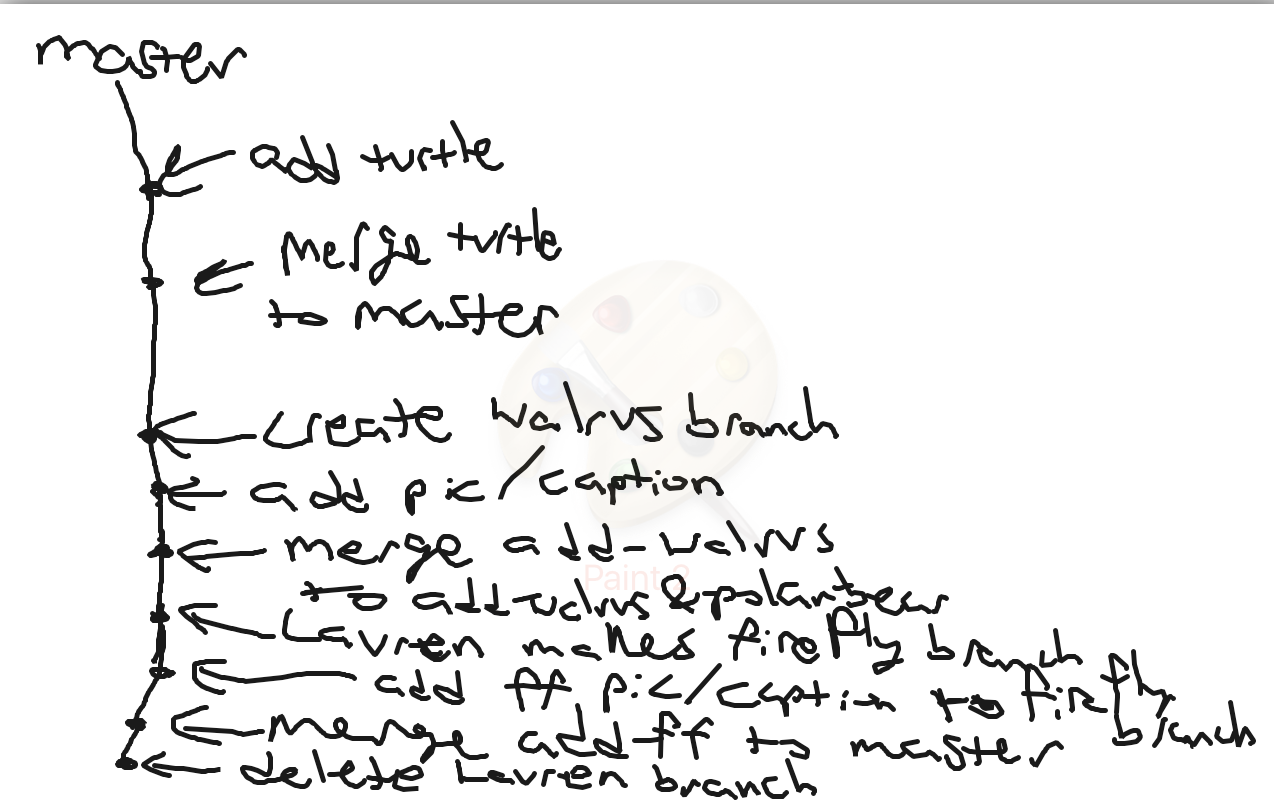 master
add turtle
merge turtle
to master
create walrus branch
add pic/caption
merge add-walrus
Paint 2
to add-walrus &
Lauren makes firefly branch
add ff pic/caption to firefly
branch
merge add-ff to master
delete Lauren branch